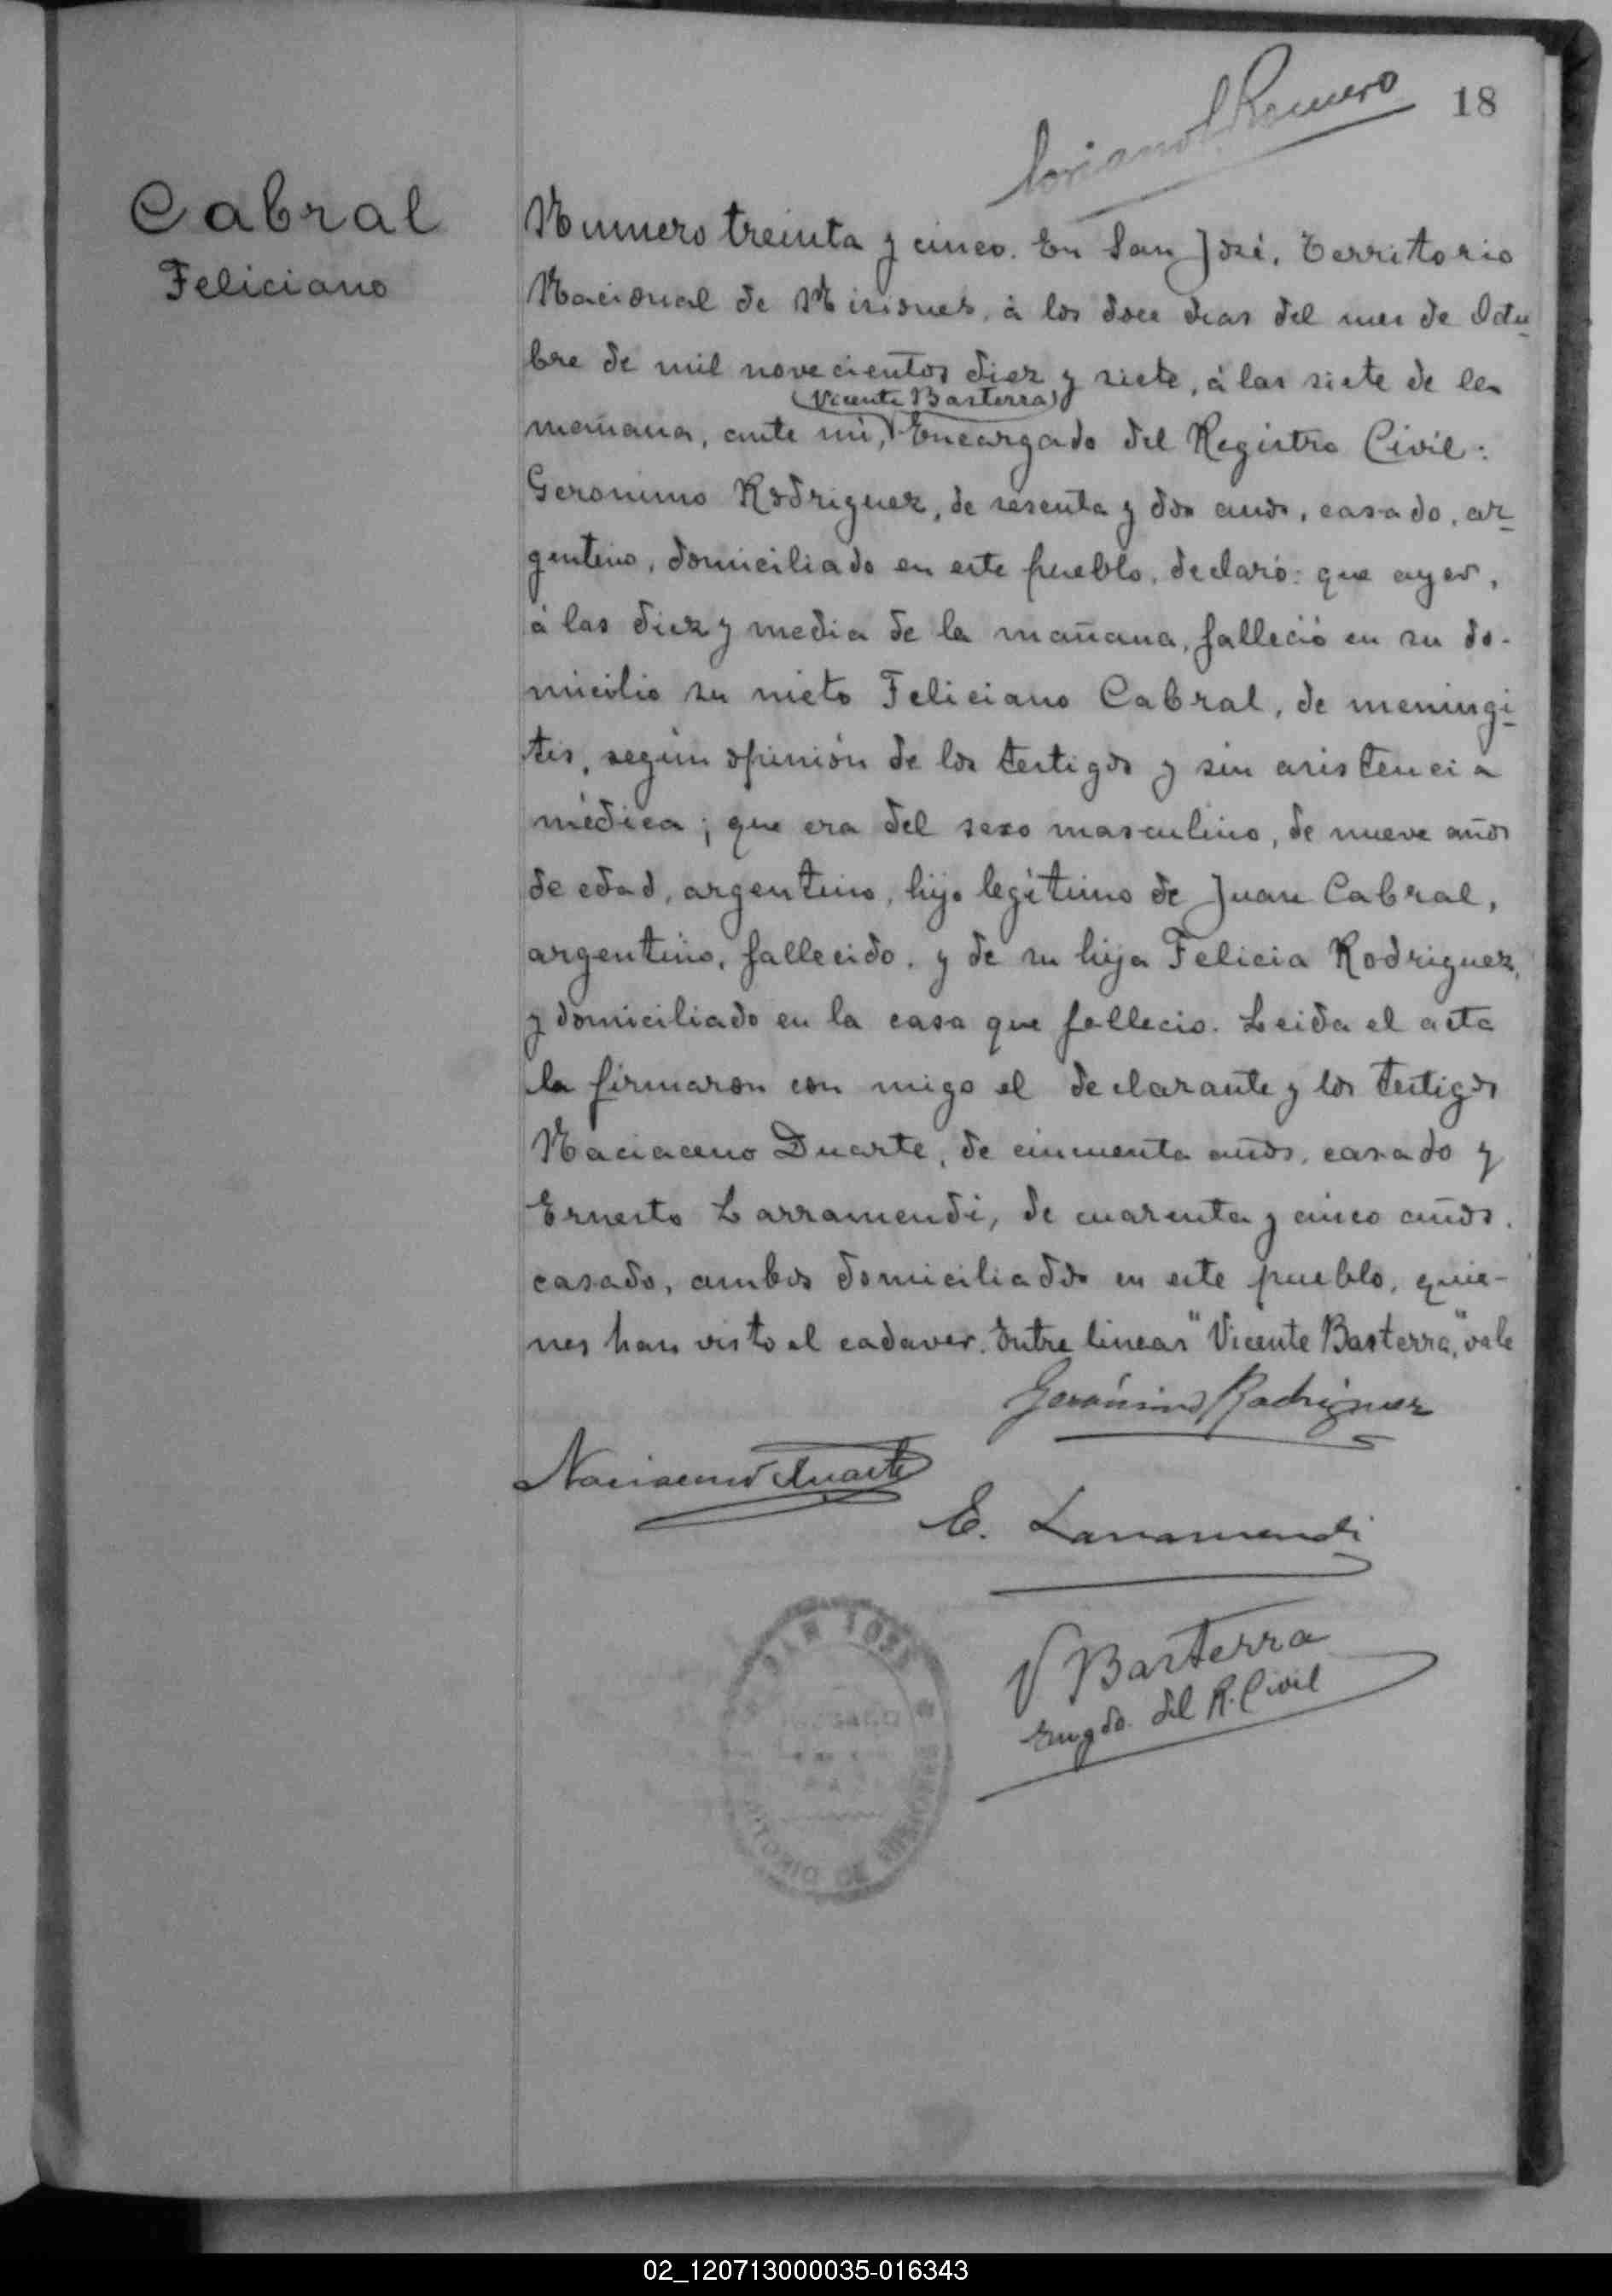 18
Romero
Cabral
Feliciano
Numero treinta y cinco. En San José, Territorio
Nacional de Misiones, á los doce dias del mes de Octu
bre de mil novecientos diez y siete, á las siete de la
(Vicente Basterra)
mañana, ante mi, Encargado del Registro Civil:
Geronimo Rodriguez, de sesenta y dos años, casado, ar
gentino, domiciliado en este pueblo, declaró: que ayer,
á las diez y media de la mañana, falleció en su do-
micilio su nieto Feliciano Cabral, de meningi
tis, según opinión de los testigos y sin asistencia
médica; que era del sexo masculino, de nueve años
de edad, argentino, hijo legítimo de Juan Cabral,
argentino, fallecido, y de su hija Felicia Rodriguez,
y domiciliado en la casa que fallecio. Leida el acta
la firmaron con migo el declarante y los testigos
Naciaceno Duarte, de cincuenta años, casado y
Ernesto Larramendi, de cuarenta y cinco años,
casado, ambos domiciliados en este pueblo, quie-
nes han visto el cadaver. Entre lineas "Vicente Basterra," vale
Gerónimo Rodriguez
Naciaceno Duarte
E. Larramendi
V Basterra
Engdo. del R. Civil
SAN JOSE
JUZGADO
TERRITORIO DE MISIONES
02_120713000035-016343